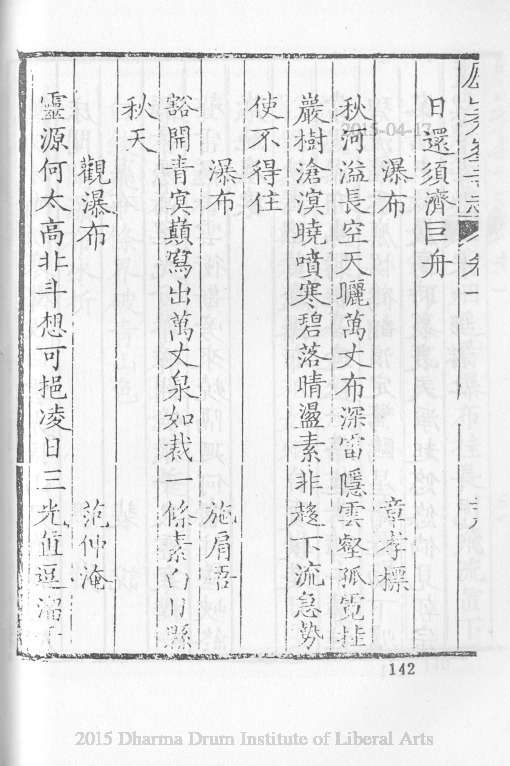 日還須濟巨舟
瀑布 章孝標
秋河溢長空天曬萬丈布深雷隱雲壑孤電挂
巖樹滄溟曉噴寒碧落晴盪素非趍下流急勢
使不得住
瀑布 施肩吾
豁開青㝠顛寫出萬丈泉如裁一條素白日縣
秋天
觀瀑布 范仲淹
靈源何太高北斗想可挹凌日三光
逗溜
卷一
142
2015-04-17
2015 Dharma Drum Institute of Liberal Arts